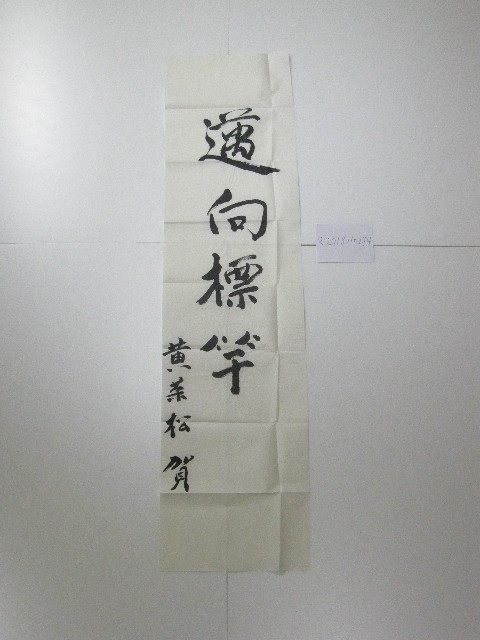 邁向標竿
黃葉松 賀